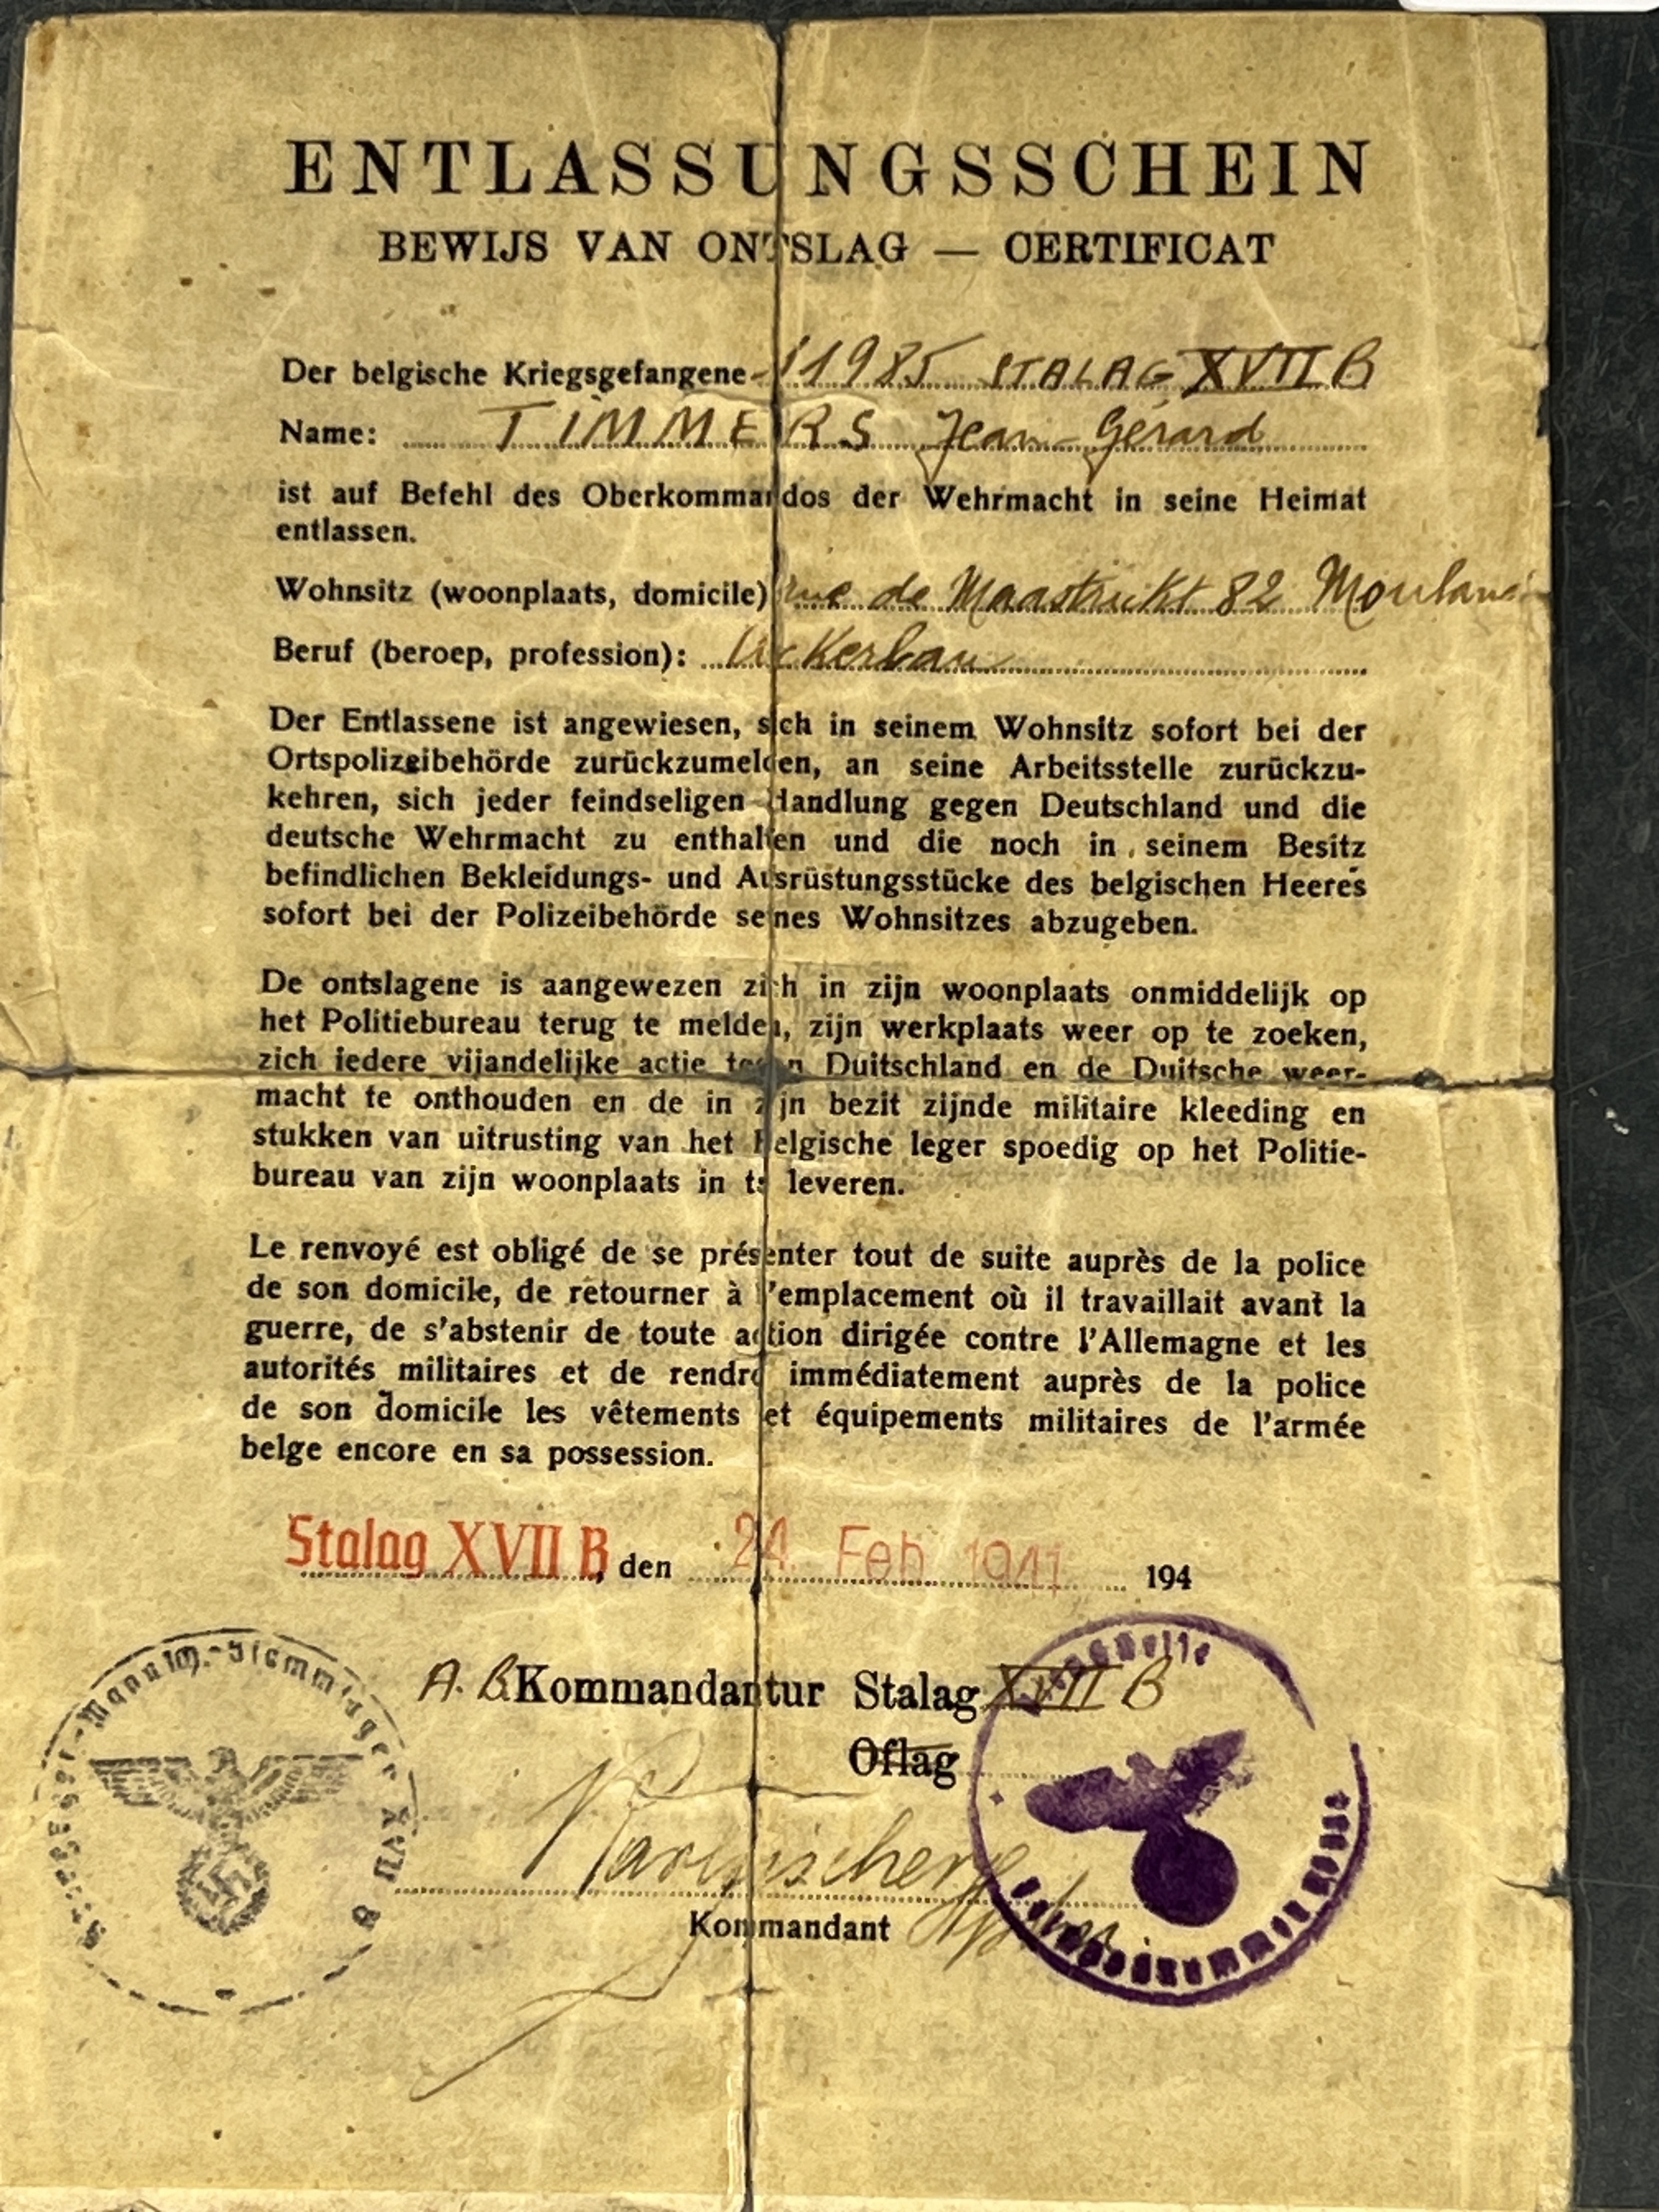 ENTLASSUNGSSCHEIN
BEWIJS VAN ONTSLAG — CERTIFICAT
Der belgische Kriegsgefangene 11985 STALAG XVII B
Name: TIMMERS Jean-Gérard
ist auf Befehl des Oberkommandos der Wehrmacht in seine Heimat
entlassen.
Wohnsitz (woonplaats, domicile) rue de Maastricht 82
Beruf (beroep, profession): Ackerbau
Der Entlassene ist angewiesen, sich in seinem Wohnsitz sofort bei der
Ortspolizeibehörde zurückzumelden, an seine Arbeitsstelle zurückzu-
kehren, sich jeder feindseligen Handlung gegen Deutschland und die
deutsche Wehrmacht zu enthalten und die noch in seinem Besitz
befindlichen Bekleidungs- und Ausrüstungsstücke des belgischen Heeres
sofort bei der Polizeibehörde seines Wohnsitzes abzugeben.
De ontslagene is aangewezen zich in zijn woonplaats onmiddelijk op
het Politiebureau terug te melden, zijn werkplaats weer op te zoeken,
zich iedere vijandelijke actie tegen Duitschland en de Duitsche weer-
macht te onthouden en de in zijn bezit zijnde militaire kleeding en
stukken van uitrusting van het Belgische leger spoedig op het Politie-
bureau van zijn woonplaats in te leveren.
Le renvoyé est obligé de se présenter tout de suite auprès de la police
de son domicile, de retourner à l'emplacement où il travaillait avant la
guerre, de s'abstenir de toute action dirigée contre l'Allemagne et les
autorités militaires et de rendre immédiatement auprès de la police
de son domicile les vêtements et équipements militaires de l'armée
belge encore en sa possession.
Stalag XVII B, den 24. Feb. 1941 194
A. B. Kommandantur Stalag XVII B
Oflag
Kommandant